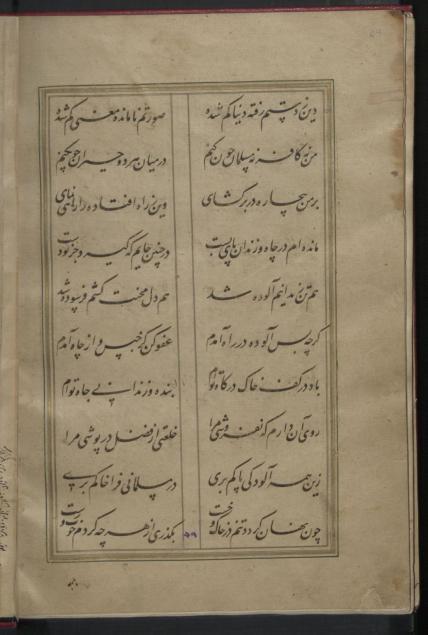 دین ز دستم رفته دنیا گم شده صورتم نامانده معنی گم شده
من نه کافر نه مسلمان چون کنم در میان هر دو حیران چون کنم
بر من بیچاره در برگشای وین ز راه افتاده را راهی نمای
مانده‌ام در چاه و زندان پای بست در چنین جایم که گیرد جز تو دست
هم تن زندانیم آلوده شد هم دل محنت کشم فرسوده شد
گرچه بس آلوده در راه آمدم عفو کن کز حبس و از چاه آمدم
باد در کف خاک درگاه توام بنده و زندانی بی جاه توام
روی آن دارم که نفروشی مرا خلقتی از فضل در پوشی مرا
زین همه آلودگی پاکم بری در مسلمانی فرا خاکم بری
چون نهان گردد تنم در خاک و خشت بگذری از هر چه کردم خوب و زشت